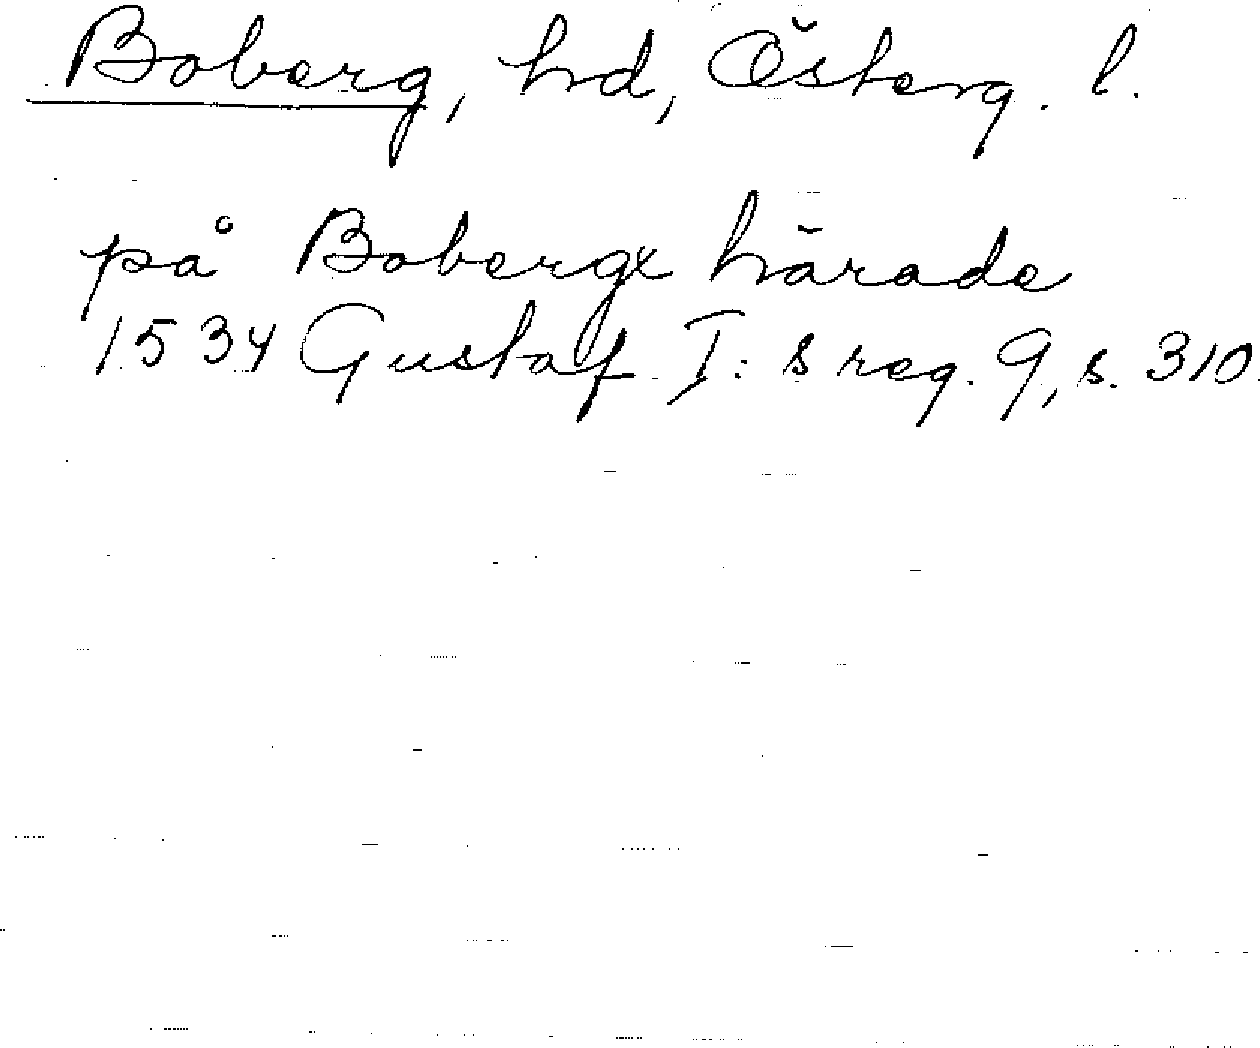 Boberg, hd, Österg. l.
på Bobergx härade
1534 Gustaf I: s reg. 9, s. 310.